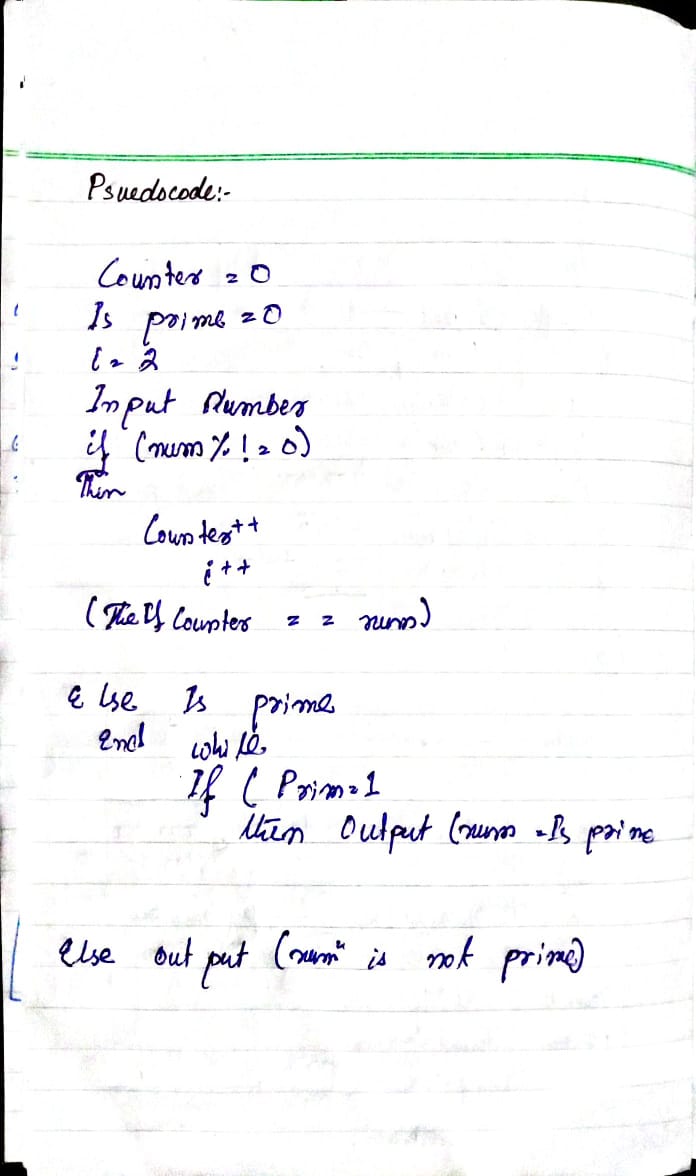 Psuedocode:-
Counter = 0
Is prime = 0
i = 2
Input Number
if (num % ! = 0)
Then
Counter++
i++
(The If Counter = = num)
Else Is prime
End while
If ( Prim = 1
then Output (num - Is prime
Else out put (num" is not prime)